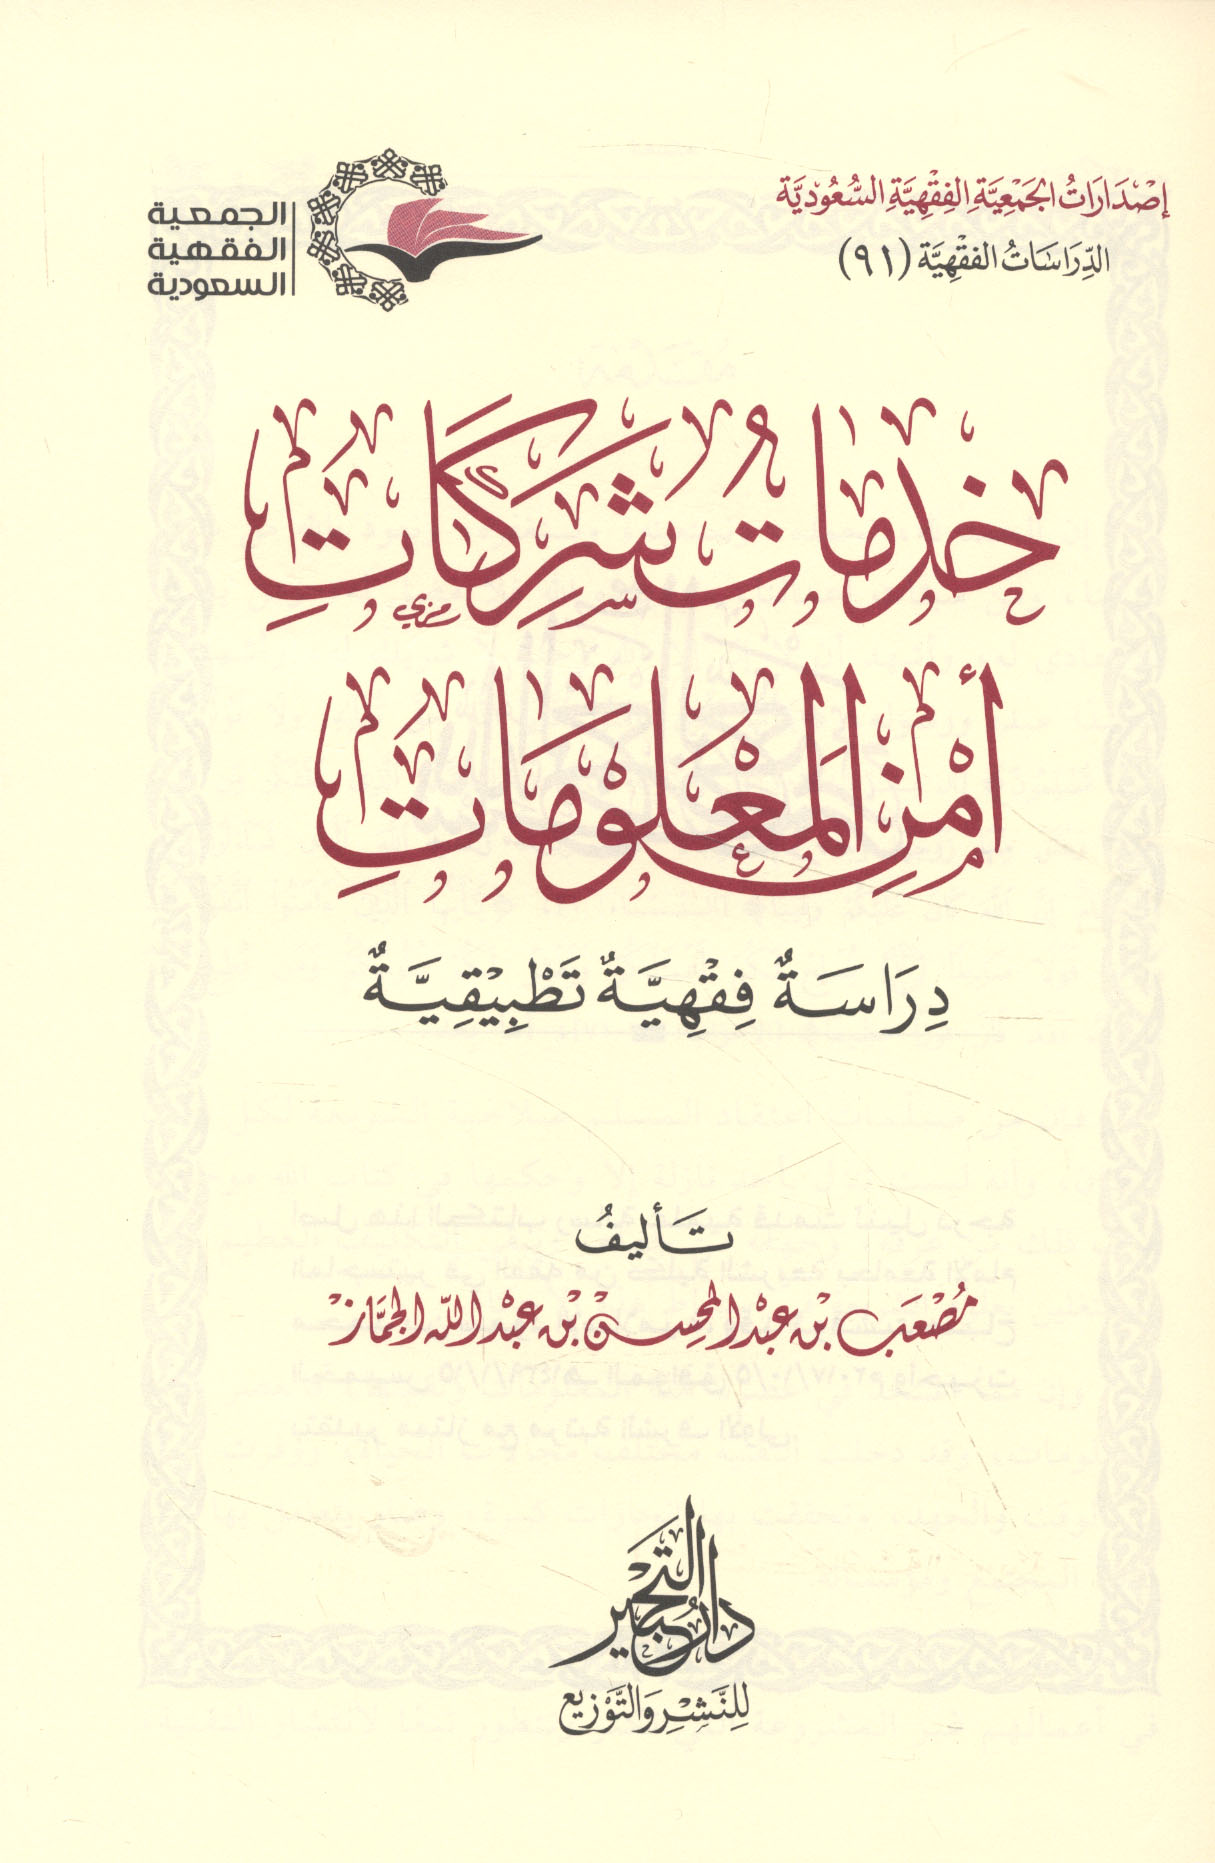 إِصْدَارَاتُ الجَمْعِيَّةِ الفِقْهِيَّةِ السُّعُوْدِيَّة
الدِّرَاسَاتُ الفِقْهِيَّة (٩١)
الجمعية
الفقهية
السعودية
خِدْمَاتُ شَرِكَاتِ
أَمْنِ المَعْلُوْمَاتِ
دِرَاسَةٌ فِقْهِيَّةٌ تَطْبِيْقِيَّةٌ
تَأليفُ
مُصْعَب بْن عَبْد المحسِنْ بْن عَبْد الله الجمَّاز
دار التحبير
لِلنَّشْرِ وَالتَّوْزِيع